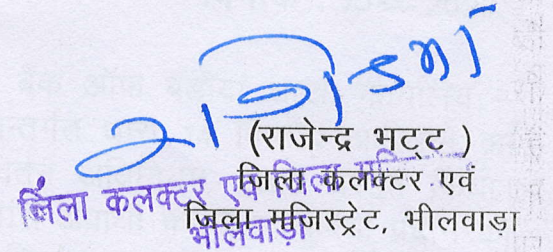 (राजेन्द्र भट्ट )
जिला कलक्टर एवं
जिला मजिस्ट्रेट, भीलवाड़ा
जिला कलक्टर एवं जिला
भीलवाड़ा